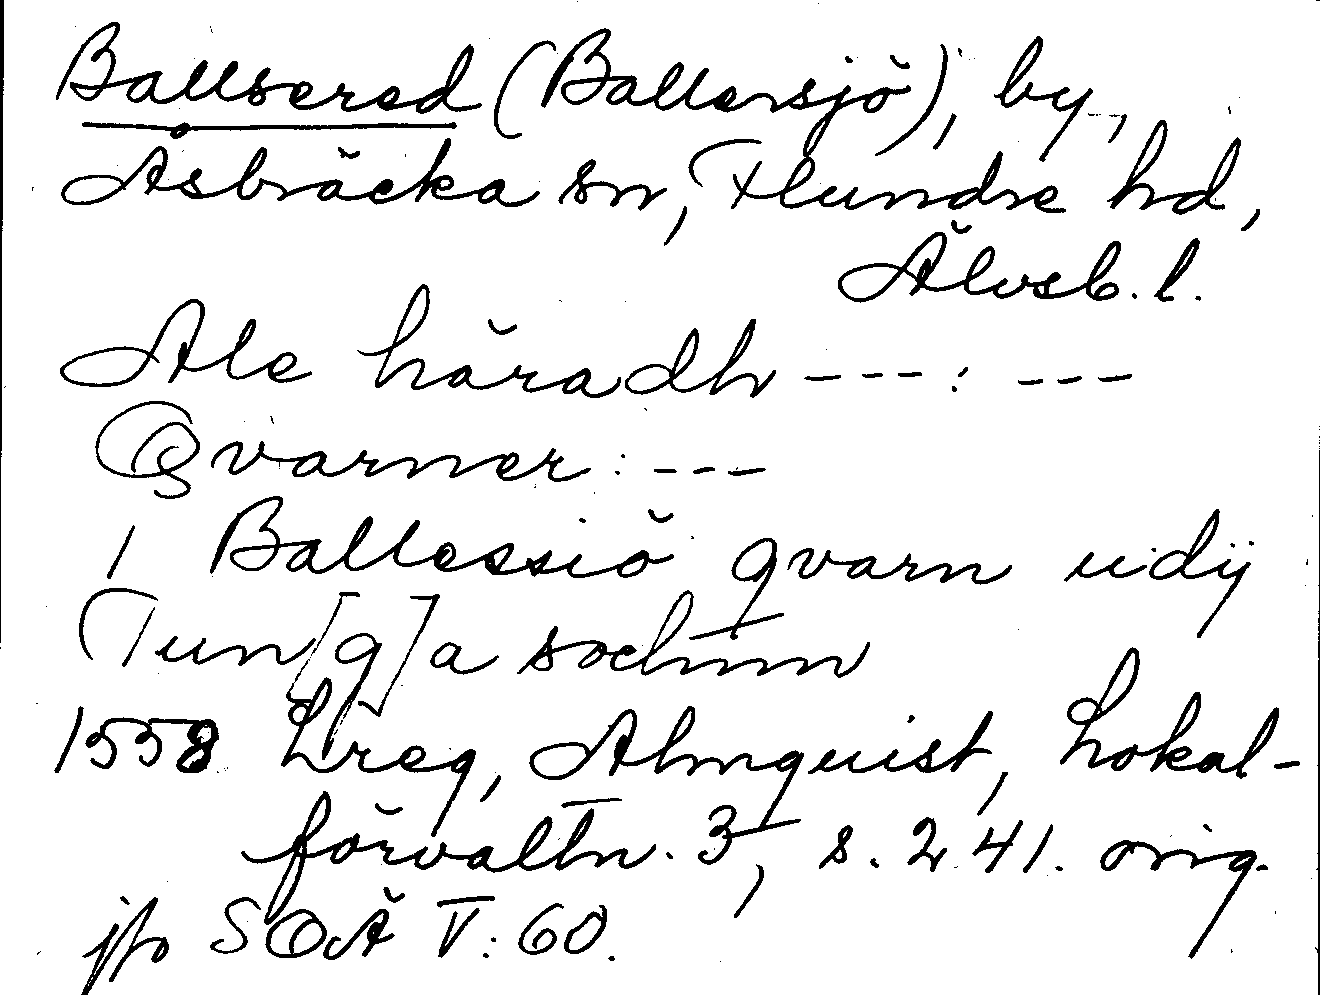 Ballsered (Ballersjö), by,
Åsbräcka sn, Flundre hd,
Älvsb. l.
Ale häradh ---: ---
Qvarner: ---
1 Ballessiö qvarn udij
Tun[g]a sochnn
1558 Lreg, Almquist, Lokal-
förvaltn. 3, s. 241. orig.
jfr SOÄ V: 60.